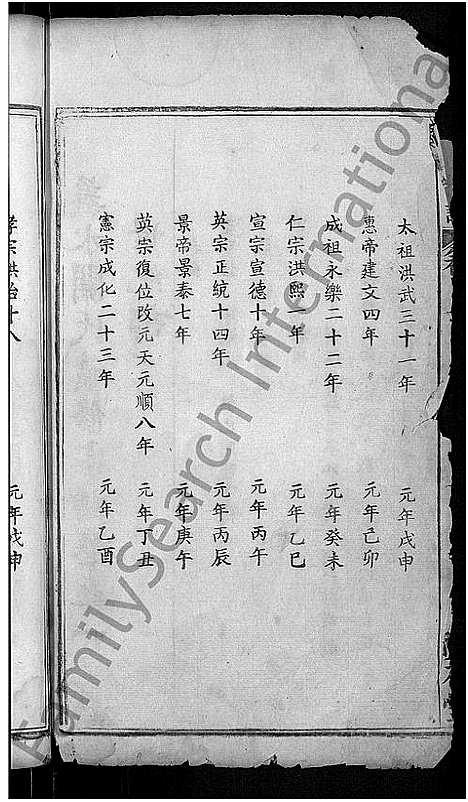 太祖洪武三十一年 元年戊申
惠帝建文四年 元年己卯
成祖永樂二十二年 元年癸未
仁宗洪熙一年 元年乙巳
宣宗宣德十年 元年丙午
英宗正統十四年 元年丙辰
景帝景泰七年 元年庚午
英宗復位改元天元順八年 元年丁丑
憲宗成化二十三年 元年乙酉
孝宗洪治十八 元年戊申
FamilySearch International